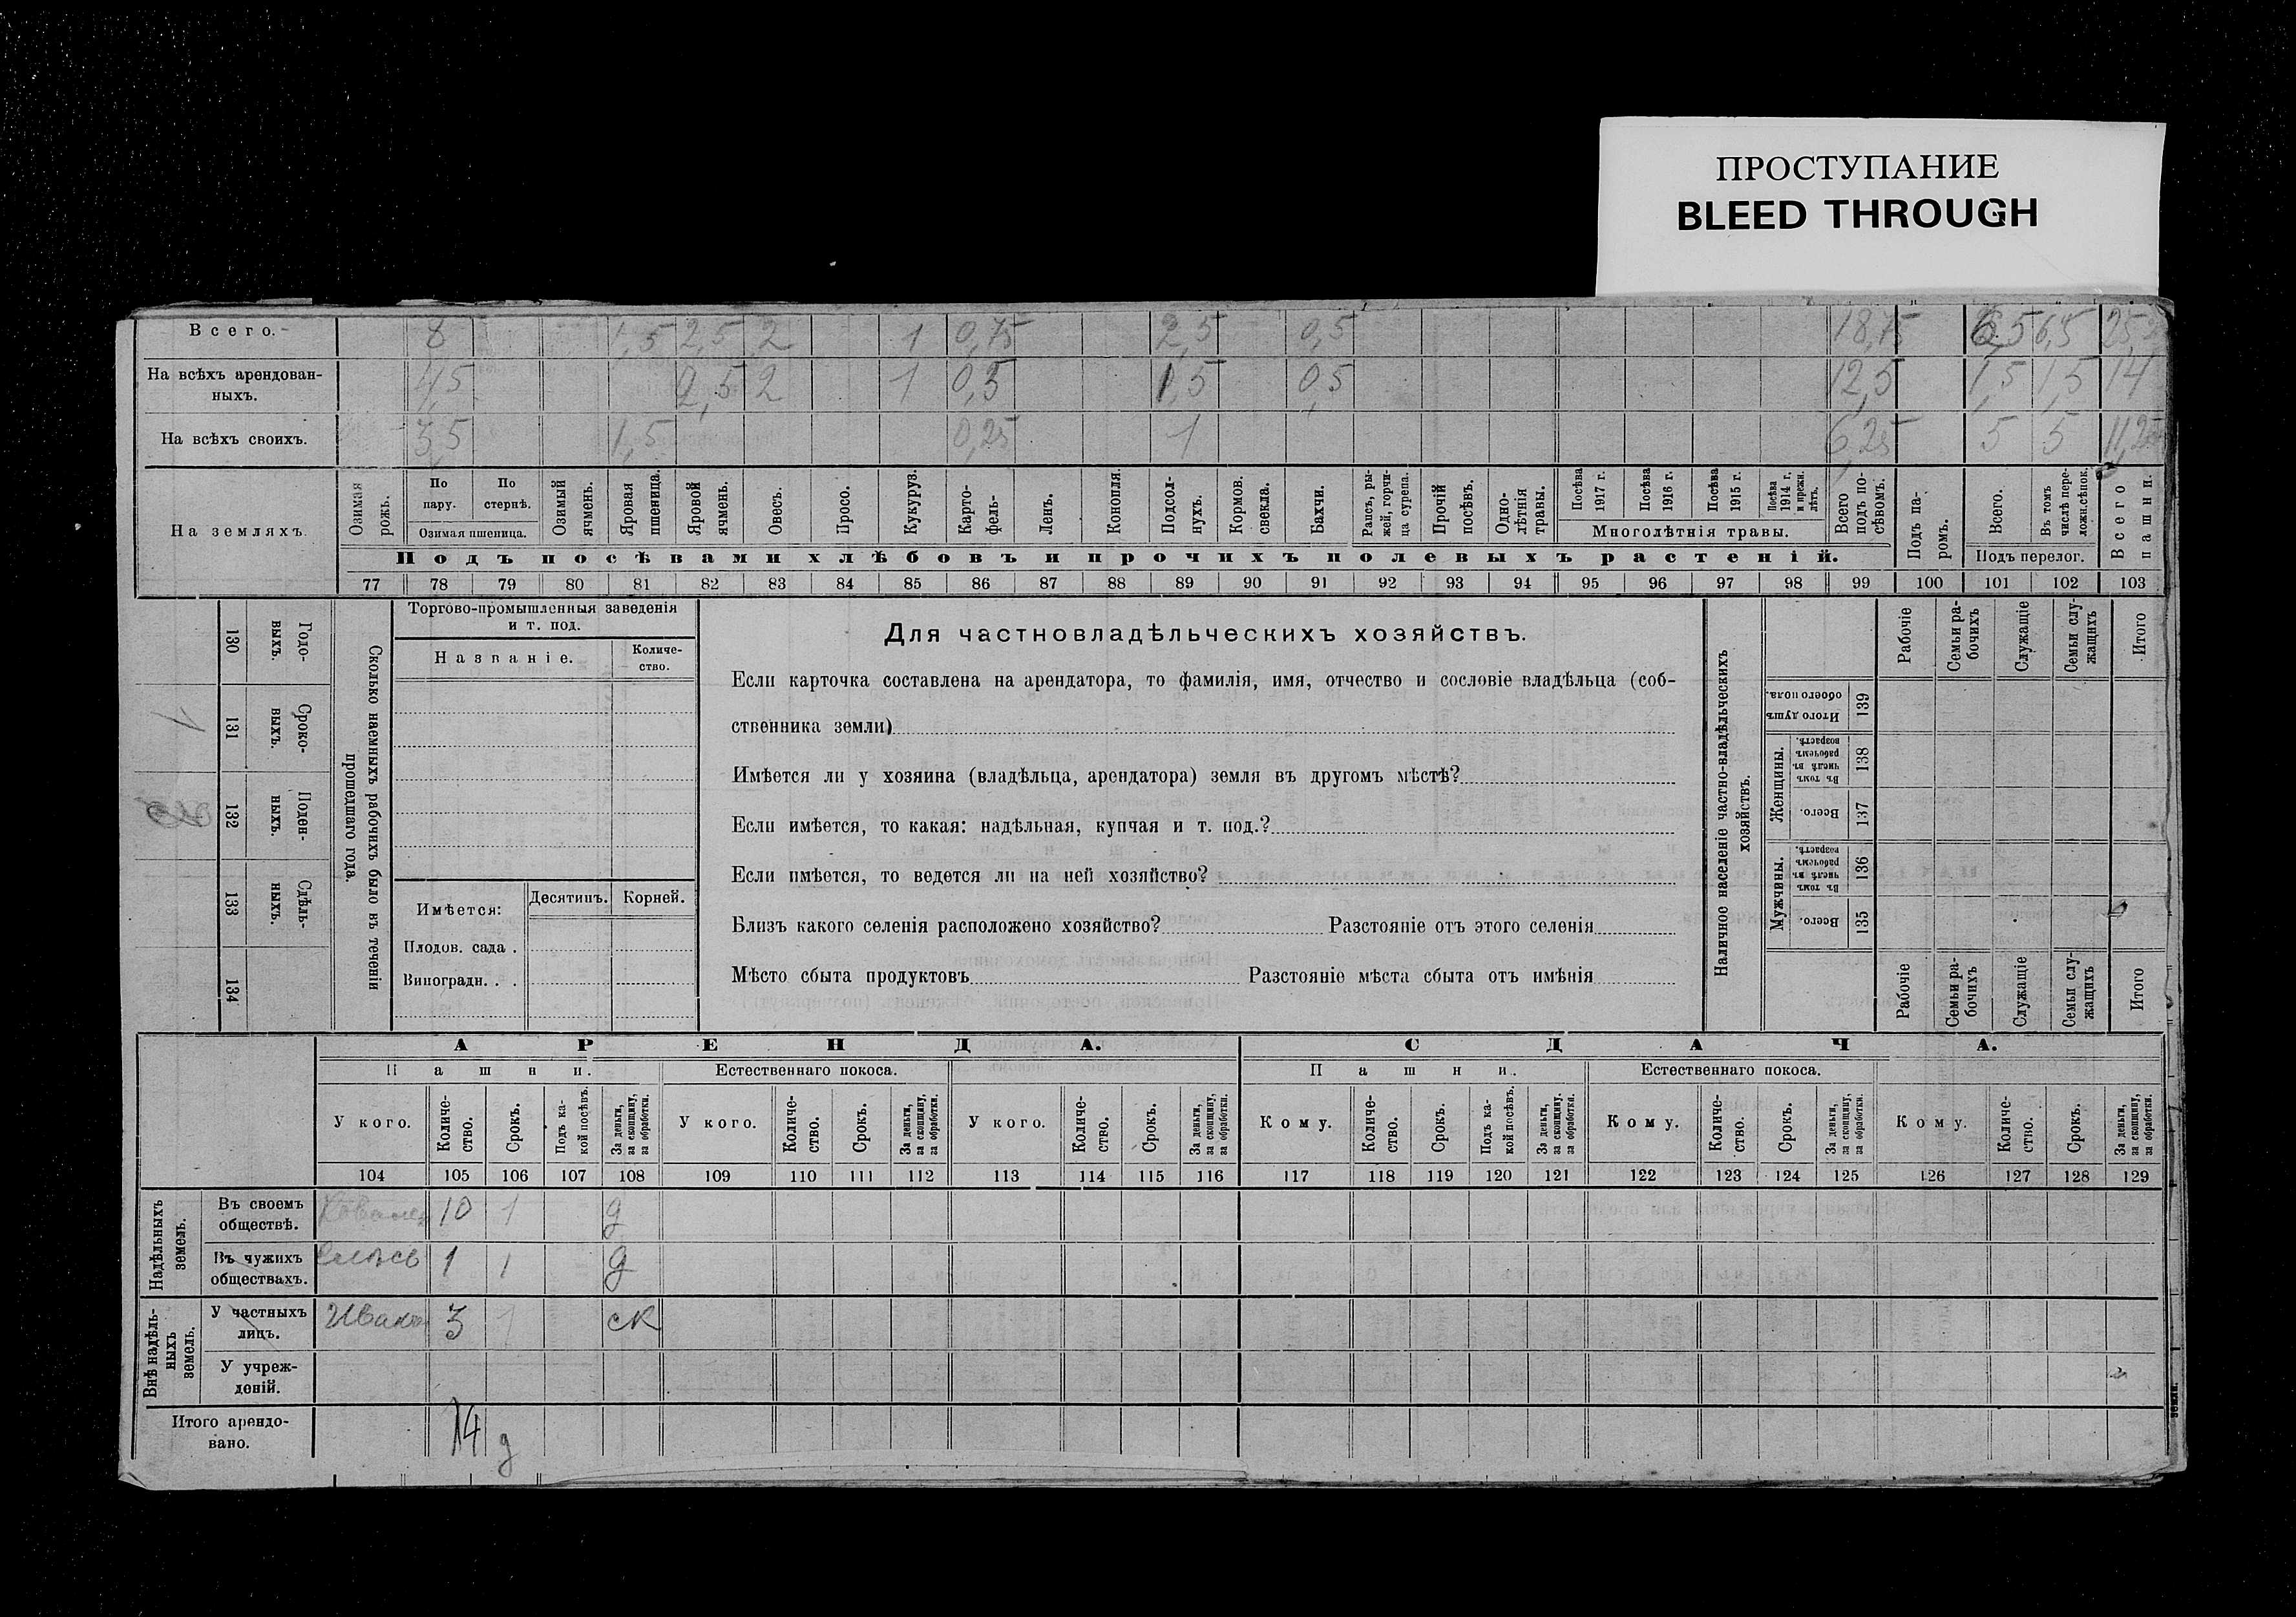 ПРОСТУПАНИЕ
BLEED THROUGH
Всего. 8 1,5 2,5 2 1 0,75 2,5 0,5 18,75 6,5 6,5
На всѣхъ арендован-
ныхъ. 4,5 2,5 2 1 0,5 1,5 0,5 12,5 1,5 1,5 14
На всѣхъ своихъ. 3,5 1,5 0,25 1 6,25 5 5 11,25
На земляхъ.
Озимая рожь.
По пару.
По стернѣ.
Озимая пшеница.
Озимый ячмень.
Яровая пшеница.
Яровой ячмень.
Овесъ.
Просо.
Кукуруз.
Карто-
фель-
Ленъ.
Конопля.
Подсол-
нухъ.
Кормов. свекла.
Бахчи.
Рапсъ, ры-
жей, горчи-
ца сурепа.
Прочій посѣвъ.
Одно-
лѣтнія травы.
Посѣва 1917 г.
Посѣва 1916 г.
Посѣва 1915 г.
Посѣва 1914 г. и прежн. лѣтъ.
Многолѣтнія травы.
Всего подъ по-
сѣвомъ.
Подъ па-
ромъ.
Всего.
Въ томъ числѣ пере-
ложн.сѣнок.
Подъ перелог.
Всего пашни.
Подъ посѣвами хлѣбовъ и прочихъ полевыхъ растеній.
77 78 79 80 81 82 83 84 85 86 87 88 89 90 91 92 93 94 95 96 97 98 99 100 101 102 103
130 Годо-
выхъ.
131 Сроко-
выхъ. 1
132 Поден-
ныхъ.
133 Сдѣль-
ныхъ.
134
Сколько наемныхъ рабочихъ было въ теченіи
прошедшаго года.
Торгово-промышленныя заведенія
и т. под.
Названіе.
Количе-
ство.
Имѣется:
Десятинъ.
Корней.
Плодов. сада .
Виноградн. . .
Для частновладѣльческихъ хозяйствъ.
Если карточка составлена на арендатора, то фамилія, имя, отчество и сословіе владѣльца (соб-
ственника земли)
Имѣется ли у хозяина (владѣльца, арендатора) земля въ другомъ мѣстѣ?
Если имѣется, то какая: надѣльная, купчая и т. под.?
Если имѣется, то ведется ли на ней хозяйство?
Близъ какого селенія расположено хозяйство? Разстояніе отъ этого селенія
Мѣсто сбыта продуктовъ Разстояніе мѣста сбыта отъ имѣнія
Наличное населеніе частно-владѣльческихъ
хозяйствъ.
Рабочіе
Семьи ра-
бочихъ
Служащіе
Семьи слу-
жащихъ
Итого
Итого душъ обоего пола. 139
Женщины.
Въ томъ числѣ въ рабочемъ возрастѣ. 138
Всего. 137
Мужчины.
Въ томъ числѣ въ рабочемъ возрастѣ. 136
Всего. 135
Рабочіе
Семьи ра-
бочихъ
Служащіе
Семьи слу-
жащихъ
Итого
АРЕНДА. СДАЧА.
Пашни. Естественнаго покоса. Пашни. Естественнаго покоса.
У кого.
Количе-
ство.
Срокъ.
Подъ ка-
кой посѣвъ.
За деньги,
за скопщину,
за обработки.
У кого.
Количе-
ство.
Срокъ.
За деньги,
за скопщину,
за обработки.
У кого.
Количе-
ство.
Срокъ.
За деньги,
за скопщину,
за обработки.
Кому.
Количе-
ство.
Срокъ.
Подъ ка-
кой посѣвъ.
За деньги,
за скопщину,
за обработки.
Кому.
Количе-
ство.
Срокъ.
За деньги,
за скопщину,
за обработки.
Кому.
Количе-
ство.
Срокъ.
За деньги,
за скопщину,
за обработки.
104 105 106 107 108 109 110 111 112 113 114 115 116 117 118 119 120 121 122 123 124 125 126 127 128 129
Надѣльныхъ
земель.
Въ своемъ
обществѣ. 10 1 д
Въ чужихъ
обществахъ. 1 1 д
Внѣ надѣль-
ныхъ
земель.
У частныхъ
лицъ. 3 1 ск
У учреж-
деній.
Итого арендо-
вано. 14 д